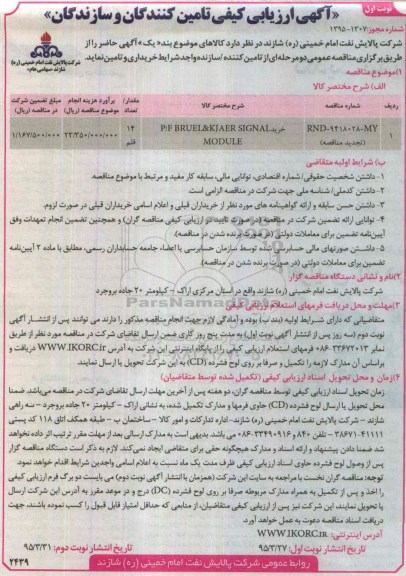 نوبت اول
شماره مجوز: ۱۳۰۷-۱۳۹۵
«آگهی ارزیابی کیفی تامین کنندگان و سازندگان»
شرکت پالایش نفت امام خمینی (ره) شازند در نظر دارد کالاهای موضوع بند «یک» آگهی حاضر را از
طریق برگزاری مناقصه عمومی دو مرحله‌ای از تامین کننده / سازنده واجد شرایط خریداری و تامین نماید.
شرکت پالایش نفت امام خمینی (ره)
شازند (سهامی عام)
۱) موضوع مناقصه
الف) شرح مختصر کالا
ردیف | شماره مناقصه | شرح مختصر کالا | مقدار/ تعداد | برآورد هزینه انجام موضوع (ریال) | مبلغ تضمین شرکت در مناقصه (ریال)
۱ | RND-9418028-MY (تجدید مناقصه) | خرید P/F BRUEL&KJAER SIGNAL MODULE | ۱۴ قلم | ۲۳/۳۵۰/۰۰۰/۰۰۰ | ۱/۱۶۷/۵۰۰/۰۰۰
ب) شرایط اولیه متقاضی
۱- داشتن شخصیت حقوقی/ شماره اقتصادی، توانایی مالی، سابقه کار مفید و مرتبط با موضوع مناقصه.
۲- داشتن کدملی/ شناسه ملی جهت شرکت در مناقصه الزامی است.
۳- داشتن حسن سابقه و ارائه گواهینامه های مورد نظر از خریداران قبلی و اعلام اسامی خریداران قبلی در صورت لزوم.
۴- توانایی ارائه تضمین شرکت در مناقصه (در صورت تایید در ارزیابی کیفی مناقصه گران) و همچنین تضمین انجام تعهدات وفق
آیین‌نامه تضمین برای معاملات دولتی (در صورت برنده شدن در مناقصه).
۵- داشتن صورتهای مالی حسابرسی شده توسط سازمان حسابرسی یا اعضاء جامعه حسابداران رسمی، مطابق با ماده ۲ آیین‌نامه
تضمین برای معاملات دولتی (در صورت برنده شدن در مناقصه).
۲) نام و نشانی دستگاه مناقصه گزار
شرکت پالایش نفت امام خمینی (ره) شازند واقع در استان مرکزی اراک - کیلومتر ۲۰ جاده بروجرد
۳) مهلت و محل دریافت فرمهای استعلام ارزیابی کیفی
متقاضیانی که دارای شرایط اولیه (بند ب) بوده و آمادگی لازم جهت انجام مناقصه مذکور را دارند می توانند پس از انتشار آگهی
نوبت دوم (سه روز پس از انتشار آگهی نوبت اول) به مدت پنج روز کاری ضمن ارسال تقاضای شرکت در مناقصه مورد نظر از طریق
نمابر ۰۸۶-۳۳۶۷۲۰۱۳ فرمهای استعلام ارزیابی کیفی را از پایگاه اینترنتی این شرکت به آدرس WWW.IKORC.ir دریافت و
براساس آن مدارک لازمه را تکمیل و صرفاً بر روی لوح فشرده (CD) به این شرکت تحویل یا ارسال نمایند.
۴) زمان و محل تحویل اسناد ارزیابی کیفی (تکمیل شده توسط متقاضیان)
زمان تحویل اسناد ارزیابی کیفی توسط مناقصه گران، دو هفته پس از آخرین مهلت ارسال تقاضای شرکت در مناقصه می‌باشد. ضمنا
محل تحویل یا ارسال لوح فشرده (CD) حاوی فرمها و مدارک تکمیل شده، به نشانی اراک - کیلومتر ۲۰ جاده بروجرد - سه راهی
شازند - شرکت پالایش نفت امام خمینی (ره) شازند - اداره تدارکات و امور کالا - ساختمان ب - طبقه همکف اتاق ۱۱۸ کد پستی
۳۸۶۷۱-۴۱۱۱۱ - تلفن ۸۴۰ و ۰۸۶-۳۳۴۹۰۹۱۶ می باشد. بدیهی است به مدارک ارسالی بعد از مهلت مقرر ترتیب اثر داده نخواهد
شد. ضمنا دادن پیشنهاد و ارائه اسناد و مدارک هیچگونه حقی برای متقاضی ایجاد نمی‌کند. لازم به ذکر است دستگاه مناقصه گزار
پس از وصول لوح فشرده حاوی اسناد ارزیابی کیفی ظرف مدت یک ماه نسبت به اعلام اسامی واجدین شرایط اقدام خواهد نمود.
توجه: مناقصه گران نخست با مراجعه به سایت این شرکت (همزمان با انتشار آگهی نوبت دوم) می بایست دو برگ فرم ارزیابی کیفی
را اخذ و پس از تکمیل به همراه مدارک مربوطه صرفا بر روی لوح فشرده (DC) درج و در موعد مقرر به آدرس این شرکت ارسال
یا تحویل نمایند، این شرکت نیز پس از ارزیابی کیفی متقاضیان، از منابعی که حداقل امتیاز قابل قبول را کسب نموده باشند، جهت
دریافت اسناد مناقصه دعوت به عمل خواهد آورد.
آدرس اینترنتی: WWW.IKORC.ir
تاریخ انتشار نوبت اول: ۹۵/۳/۲۷
تاریخ انتشار نوبت دوم: ۹۵/۳/۳۱
روابط عمومی شرکت پالایش نفت امام خمینی (ره) شازند
۲۴۳۹